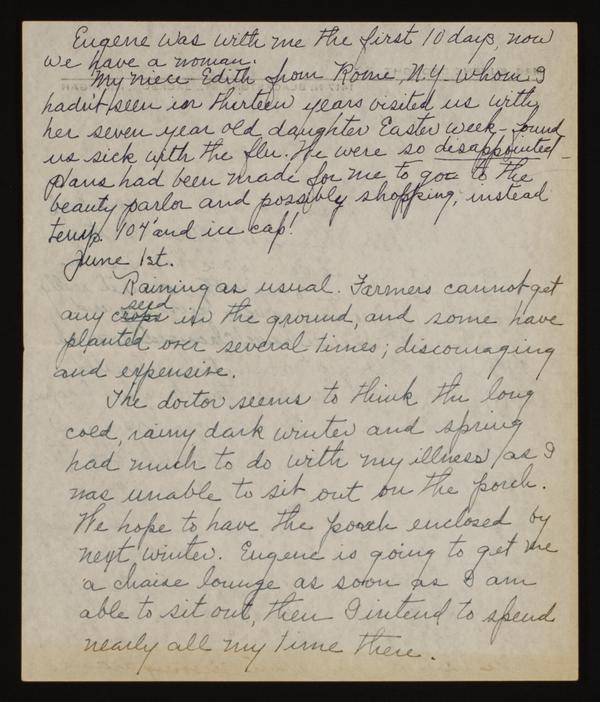 Eugene was with me the first 10 days, now
we have a woman.
My niece Edith from Rome, N.Y. whom I
hadn't seen in thirteen years visited us with
her seven year old daughter Easter week - found
us sick with the flu. We were so disappointed -
plans had been made for me to go to the
beauty parlor and possibly shopping, instead
temp. 104° and ice cap!
June 1st.
Raining as usual. Farmers cannot get
seed
any crops in the ground, and some have
planted over several times; discouraging
and expensive.
The doctor seems to think the long
cold, rainy dark winter and spring
had much to do with my illness, as I
was unable to sit out on the porch.
We hope to have the porch enclosed by
next winter. Eugene is going to get me
a chaise lounge as soon as I am
able to sit out, then I intend to spend
nearly all my time there.